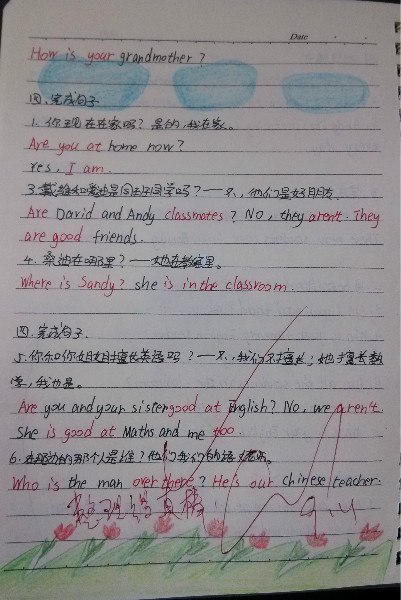 Date
How is your grandmother?
四、完成句子
1. 你现在在家吗? 是的,我在家。
Are you at home now?
Yes, I am.
3. 戴维和安迪是同班同学吗?——不,他们是好朋友.
Are David and Andy classmates? No, they aren't. They
are good friends.
4. 桑迪在哪里?——她在教室里。
Where is Sandy? she is in the classroom.
四、完成句子.
5. 你和你姐姐擅长英语吗?——不,我们不擅长;她擅长数
学,我也是。
Are you and your sister good at English? No, we aren't.
She is good at Maths and me too.
6. 在那边的那个人是谁?他是我们的语文老师。
Who is the man over there? He's our chinese teacher.
整理
9.14